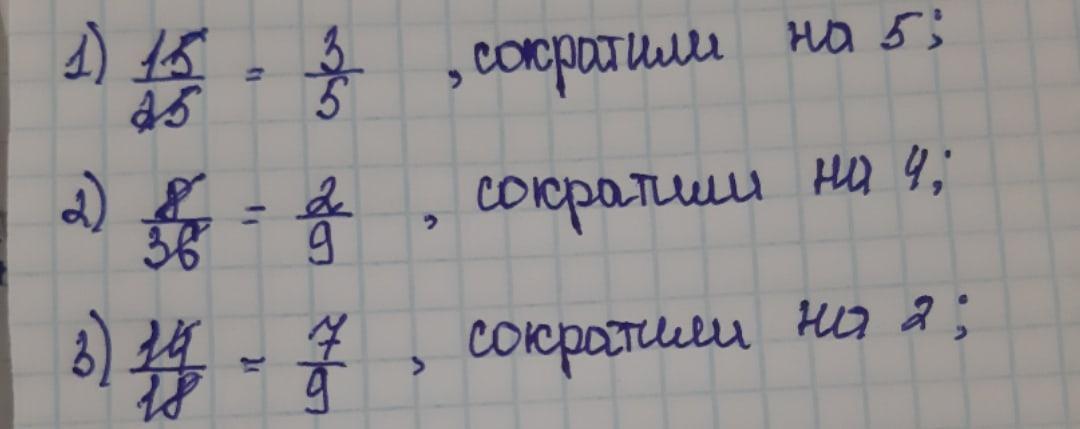 1) 15/25 = 3/5 , сократили на 5;
2) 8/36 = 2/9 , сократили на 4;
3) 14/18 = 7/9 , сократили на 2;